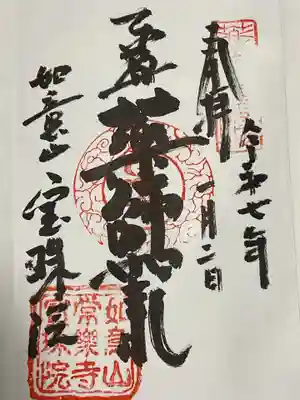 奉拝
令和七年
一月二日
薬師如来
如意山 宝珠院
如意山
常樂寺